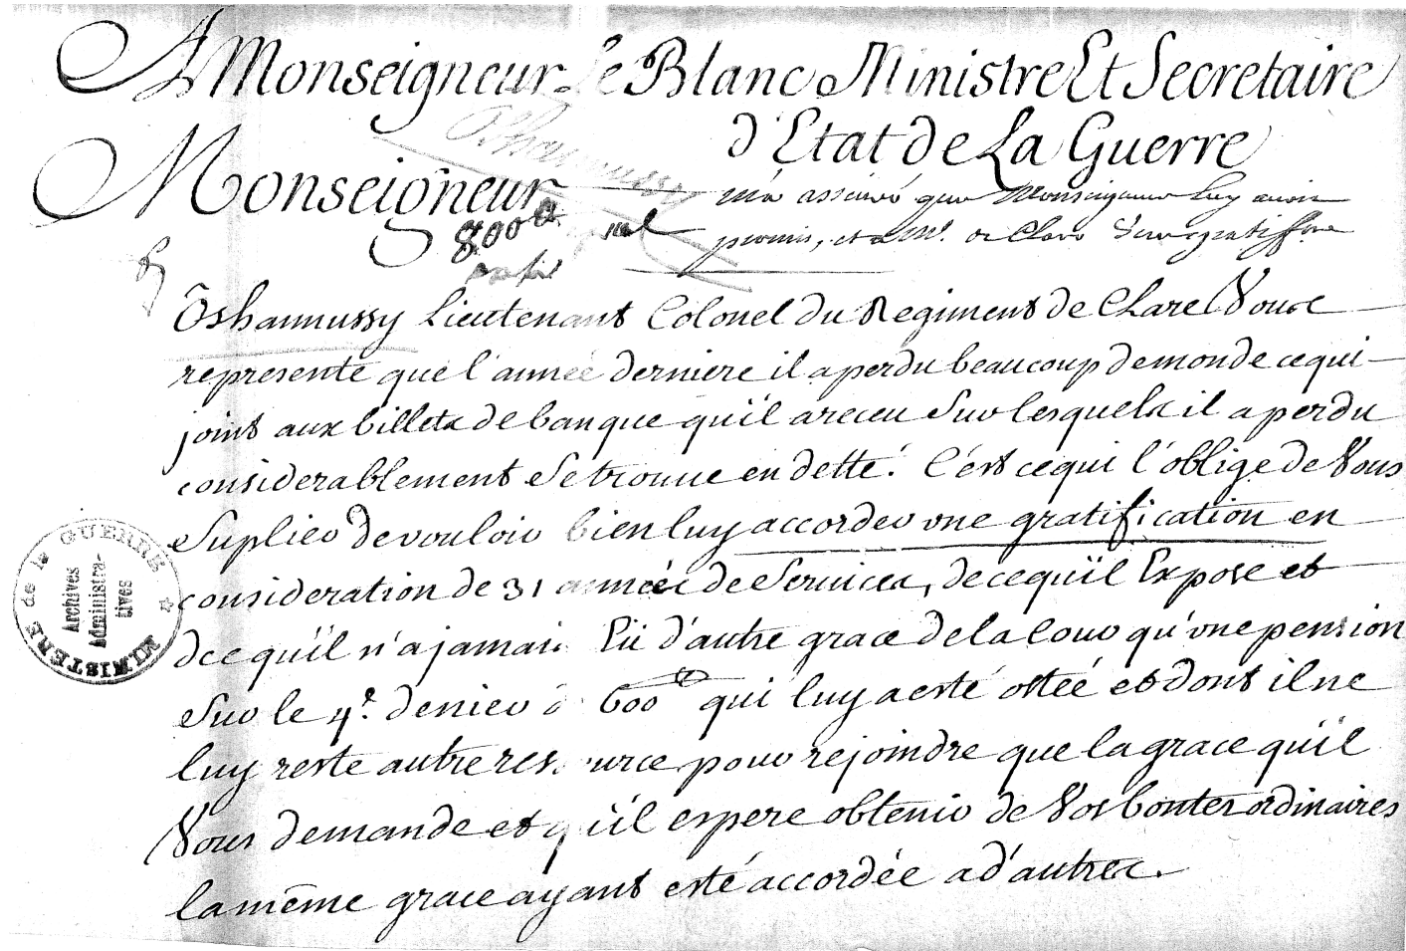 A Monseigneur le Blanc Ministre Et Secretaire
d'Etat de La Guerre
Monseigneur
m'a assuré que Monseigneur luy avoit
promis, et a Mr. de Clare une gratiffion
800
Ôshannussy Lieutenant Colonel du Regiment de Clare Vous
represente que l'année derniere il a perdu beaucoup de monde ce qui
joint aux billets de banque qu'il a receu sur lesquels il a perdu
considerablement se trouve en dette. C'est ce qui l'oblige de Vous
suplier de vouloir bien luy accorder une gratification en
consideration de 31 années de Services, de ce qu'il Expose et
de ce qu'il n'a jamais Eü d'autre grace de la Cour qu'une pension
sur le 4e. denier de 600 qui luy a esté ostée et dont il ne
luy reste autre ressource pour rejoindre que la grace qu'il
Vous demande et qu'il espere obtenir de Vos bontés ordinaires
la même grace ayant esté accordée a d'autres.
MINISTERE de la GUERRE
Archives
Administra-
tives